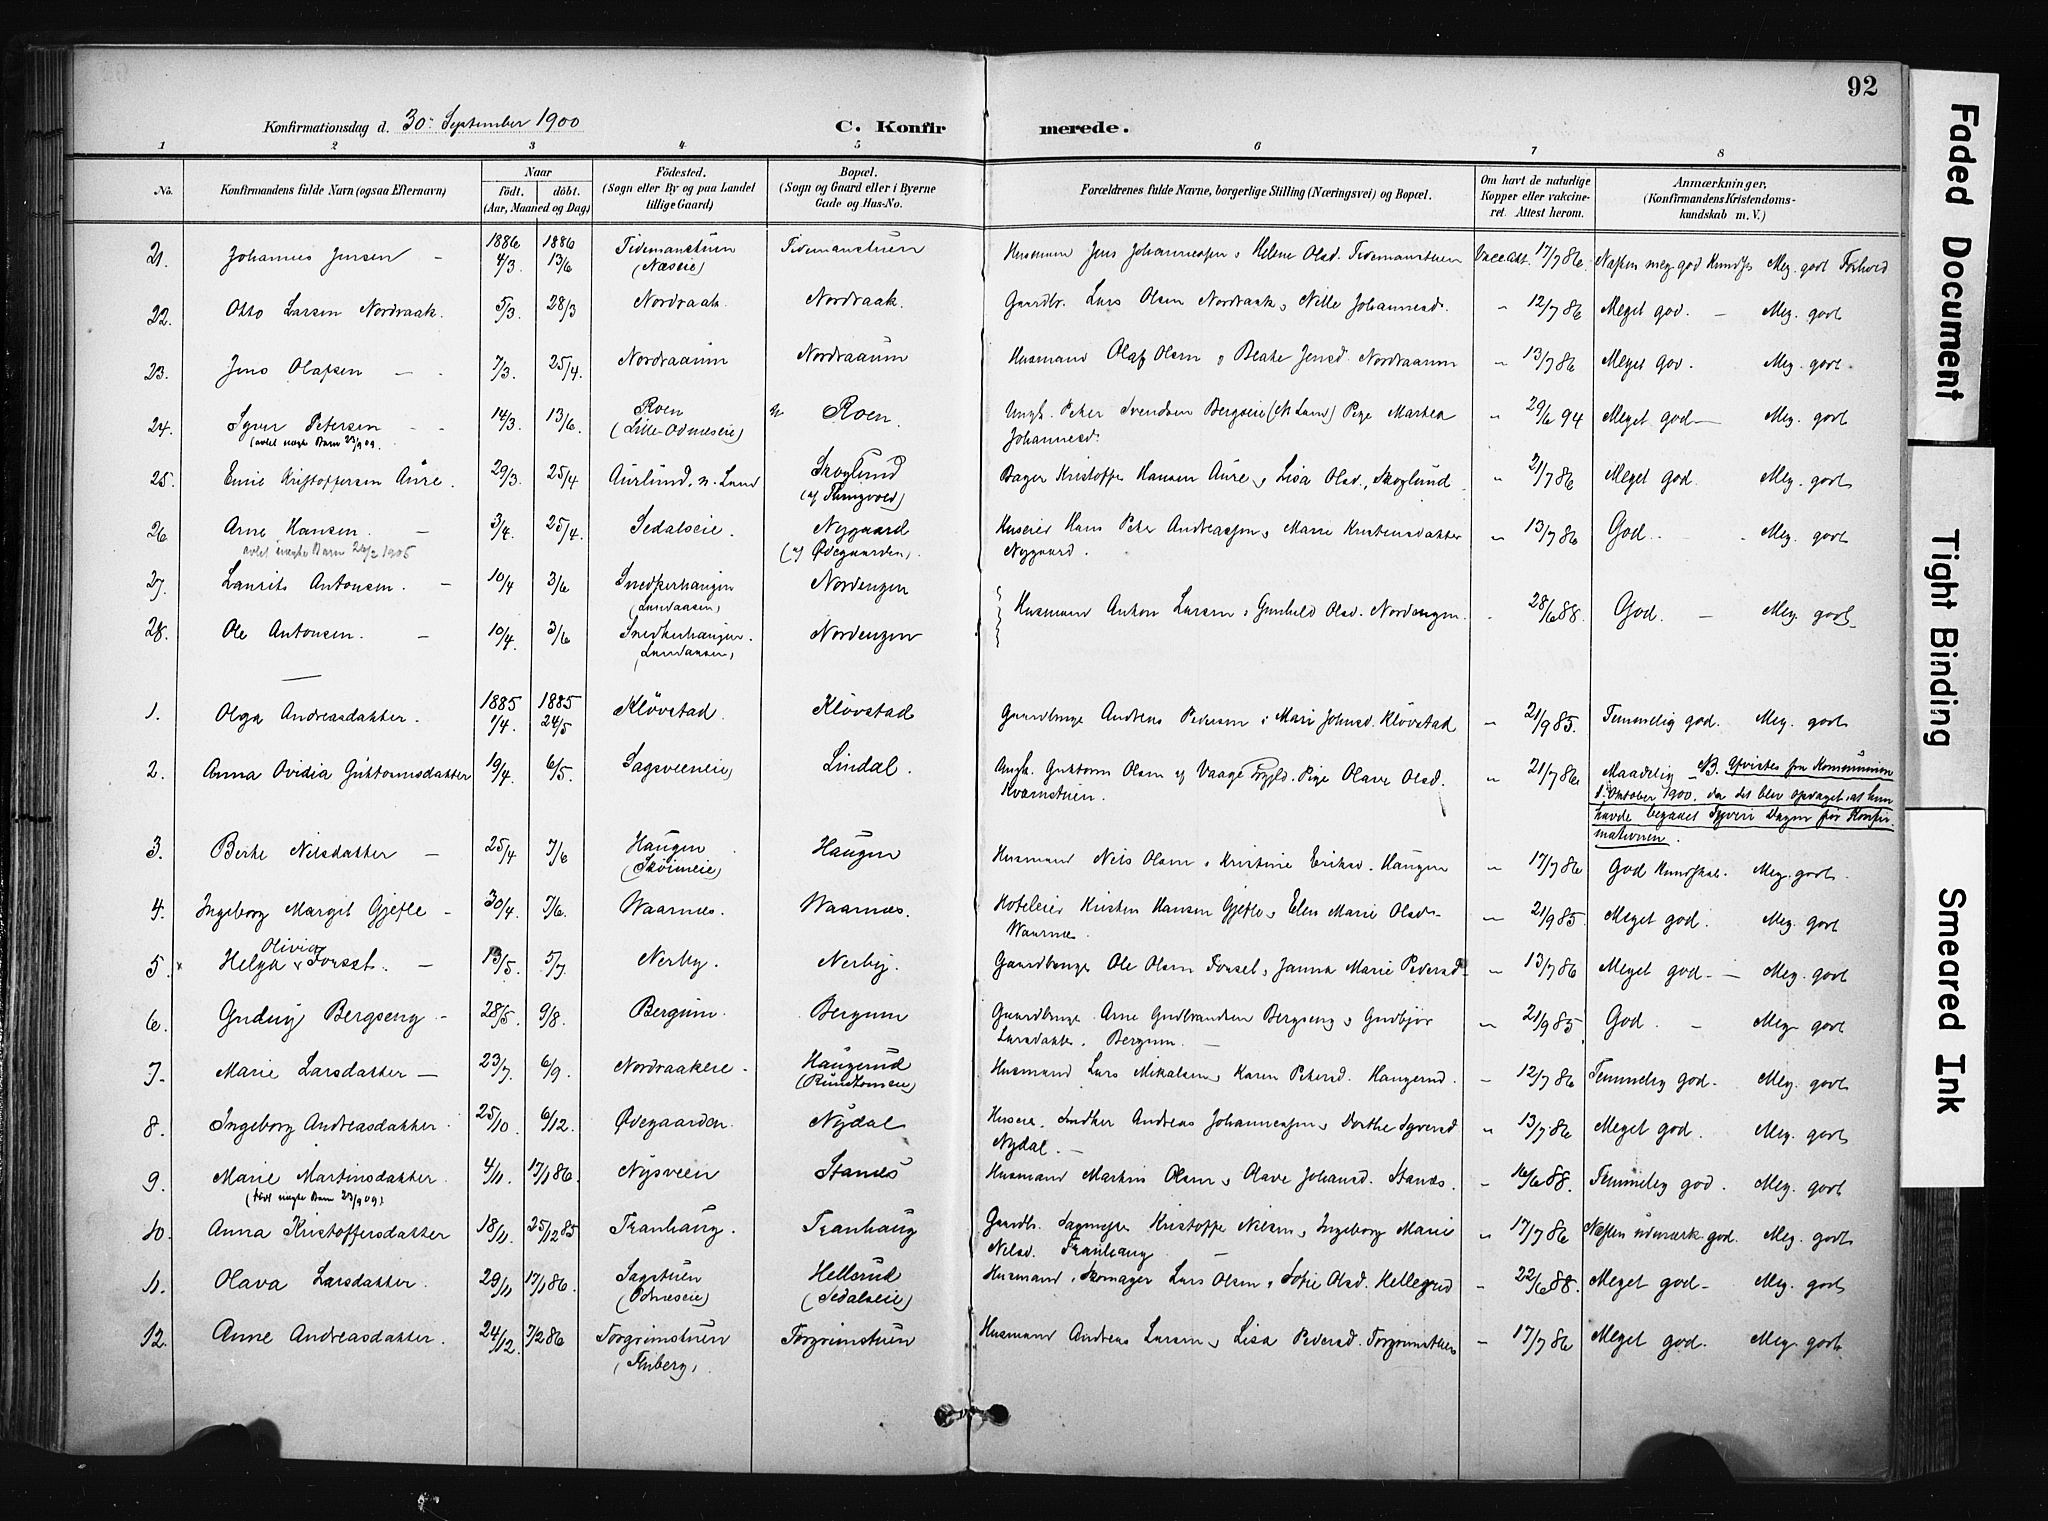 92
Konfirmationsdag d. 30. September 1900
C. Konfirmerede.
1 2 3 4 5 6 7 8
No.
Konfirmandens fulde Navn (ogsaa Efternavn)
Naar
födt. döbt.
(Aar, Maaned og Dag)
Födested.
(Sogn eller By og paa Landet
tillige Gaard)
Bopæl.
(Sogn og Gaard eller i Byerne
Gade og Hus-No.
Forældrenes fulde Navne, borgerlige Stilling (Næringsvei) og Bopæl.
Om havt de naturlige
Kopper eller vakcine-
ret. Attest herom.
Anmærkninger.
(Konfirmandens Kristendoms-
kundskab m. V.)
21. Johannes Jensen - 1886 4/3. 1886 13/6 Tidemanstuen (Næseie) Tidemanstuen Husmand Jens Johannessen, Helene Olsd. Tidemanstuen Vacc.Att. 17/7 86. Næsten meg. god Kundsk. Meg. godt Forhold
22. Otto Larsen Nordraak. 5/3. 28/3 Nordraak. Nordraak. Gaardbr. Lars Olsen Nordraak, Nille Johannesd. " 12/7 86 Meget god. - Meg. godt
23. Jens Olafsen - 7/3. 25/4. Nordraaum Nordraaum Husmand Olaf Olsen, Beate Jensd. Nordraaum " 13/7 86 Meget god. Meg. godt.
24. Syver Petersen 14/3. 13/6. Roen (Lille-Odneseie) Roen. Ungk. Peter Svendsen Bergseie (N Land) Pige Marthea " 29/6 94 Meget god - Meg. godt
(avlet uægte Barn 23/9 09. Johannesd.
25. Emil Kristoffersen Aure. 29/3. 25/4 Aurlund, n. Land Skoglund (af Thingvold) Bager Kristoffer Hansen Aure, Lisa Olsd., Skoglund. " 21/7 86 Meget god. Meg. godt
26 Arne Hansen. - 3/4. 25/4. Sedalseie. Nygaard (af Ødegaarden). Huseier Hans Peter Andreassen, Marie Kristensdatter " 13/7 86 God. Meg. godt
avlet uægte Barn 1905 Nygaard.
27. Laurits Antonsen. - 10/4 3/6 Snedkerhaugen (Lundaasen) Nordengen Husmand Anton Larsen, Gunhild Olsd. Nordengen. 28/6 88. God. - Meg. godt
28. Ole Antonsen. - 10/4. 3/6 Snedkerhaugen. (Lundaasen) Nordengen
1. Olga Andreasdatter. 1885 1/4. 1885 24/5 Klövstad. Klövstad Gaardbruger Andreas Pedersen, Mari Johnsd. Klövstad " 21/9 85. Temmelig god. Meg. godt
2. Anna Ovidia Guttormsdatter 19/4. 6/5. Sagsveeneie Lindal. Ungk. Guttorm Olsen af Vaage Fogld. Pige Olave Olsd. " 21/7 86 Maadelig NB. Afvistes fra Kommunion
Kværnstuen. d. Oktober 1900. da det blev opdaget, at hun
havde begaaet Tyveri Dagen før Konfir-
mationen.
3. Berte Nilsdatter - 25/4 7/6 Haugen (Sköieneie) Haugen Husmand Nils Olsen, Kristine Eriksd. Haugen " 17/7 86 God Kundskab. Meg. godt.
4. Ingeborg Margit Gjefle - 30/4. 7/6. Waarnes. Waarnes. Hoteleier Kristen Hansen Gjefle, Elen Marie Olsd. " 21/9 85 Meget god. Meg. godt
Waarnes.
5. Helga Olivia Forset. - 13/5. 5/7. Nerby. Nerby. Gaardbruger Ole Olsen Forset, Janna Marie Pedersd. " 13/7 86 Meget god - - Meg. godt
6. Gudny Bergseng - 28/5. 9/8. Bergum. Bergum Gaardbruger Arne Gudbrandsen Bergseng, Gudbjör " 21/9 85 God. - Meg. godt
Larsdatter. Bergum. -
7. Marie Larsdatter - 23/7. 6/9. Nordraakere. Haugerud (Rundtomeie) Husmand Lars Mikalsen, Karen Petersd. Haugerud. " 12/7 86 Temmelig god. Meg. godt
8. Ingeborg Andreasdatter. 25/10. 6/12. Ødegaarden. Nydal Huseier. Snedker Andreas Johannessen, Dorthe Syversd. " 13/7 86 Meget god. Meg. godt
Nydal. -
9. Marie Martinsdatter. 4/11. 17/1 86. Nysveen Stanæs Husmand Martin Olsen, Olave Johansd. Stanæs. " 16/6 88. Temmelig god. Meg. godt
(Født uægte Barn 23/9 09)
10. Anna Kristoffersdatter 18/11. 25/12 85 Tranhaug. Tranhaug Gaardbr. Sagmester Kristoffer Nilsen, Ingeborg Marie " 17/7 86 Næsten udmærk. god. Meg. godt
Nilsd. Tranhaug. -
11. Olava Larsdatter. 29/11 17/1 86. Sagstuen (Odneseie) Hellerud (Sedalseie) Husmand, Skomager Lars Olsen, Sofie Olsd. Hellerud " 22/6 88. Meget god - Meg. godt
12. Anne Andreasdatter. 24/12. 7/2 86 Torgrimstuen (Finberg) Torgrimstuen Husmand Andreas Larsen, Lisa Pedersd. Torgrimstuen " 17/7 86 Meget god. Meg. godt.
Faded Document
Tight Binding
Smeared Ink